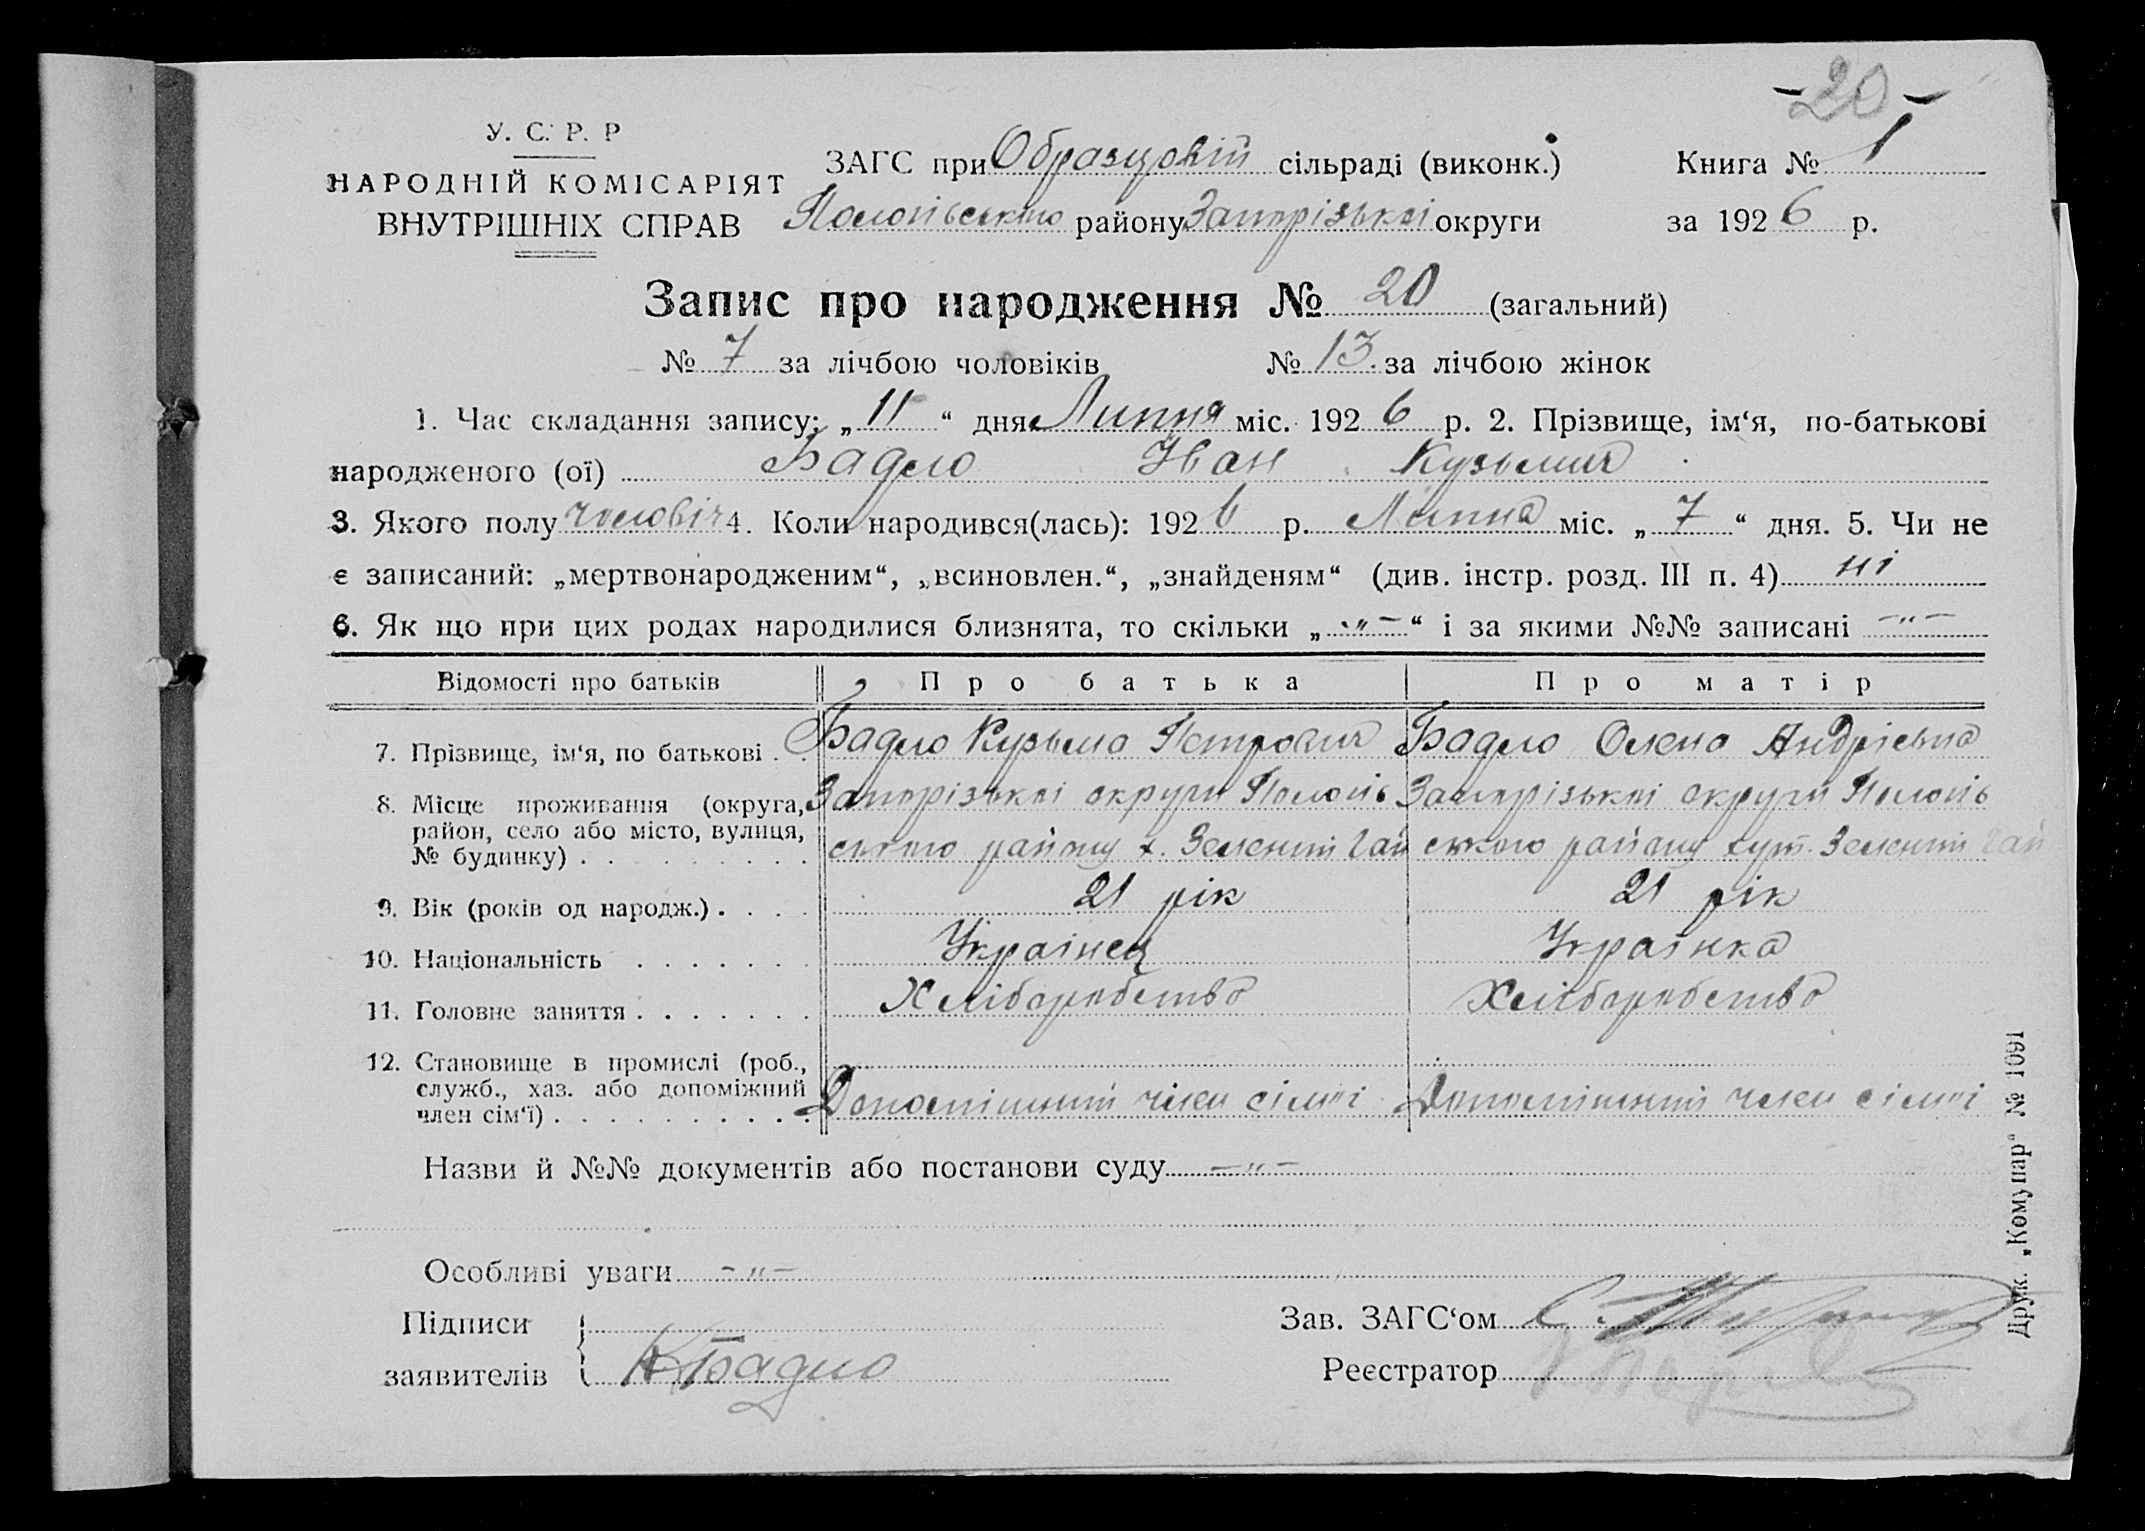 -20-
У. С. Р. Р
НАРОДНІЙ КОМІСАРІЯТ
ВНУТРІШНІХ СПРАВ
ЗАГС при Образцовій сільраді (виконк.) Книга № 1
Пологівського району Запорізької округи за 1926 р.
Запис про народження № 20 (загальний)
№ 7 за лічбою чоловіків № 13. за лічбою жінок
1. Час складання запису: „11“ дня Липня міс. 1926 р. 2. Прізвище, ім‘я, по-батькові
народженого (ої) Бадло Іван Кузьмич
3. Якого полу чоловіч 4. Коли народився(лась): 1926 р. Липня міс. „7“ дня. 5. Чи не
є записаний: „мертвонародженим“, „всиновлен.“, „знайденям“ (див. інстр. розд. III п. 4) ні
6. Як що при цих родах народилися близнята, то скільки „-„-“ і за якими №№ записані -„-
Відомості про батьків Про батька Про матір
7. Прізвище, ім‘я, по батькові . . Бадло Кузьма Петрович Бадло Олена Андрієвна
8. Місце проживання (округа, район, село або місто, вулиця, № будинку) . . . . . . . . .
Запорізької округи Пологів Запорізької округи Пологів
ського району х. Зелений Гай ського району хут. Зелений Гай
9. Вік (років од народж.) . . . . 21 рік 21 рік
10. Національність . . . . . . . Українец Українка
11. Головне заняття . . . . . . . Хліборобство Хліборобство
12. Становище в промислі (роб., служб., хаз. або допоміжний член сім‘ї) . . . . . . . . . .
Допомішний член сімї Допомішний член сімї
Назви й №№ документів або постанови суду -„-
Особливі уваги -„-
Підписи
заявителів К Бадло
Зав. ЗАГС‘ом
Реєстратор
Друк. „Комунар“ № 1091